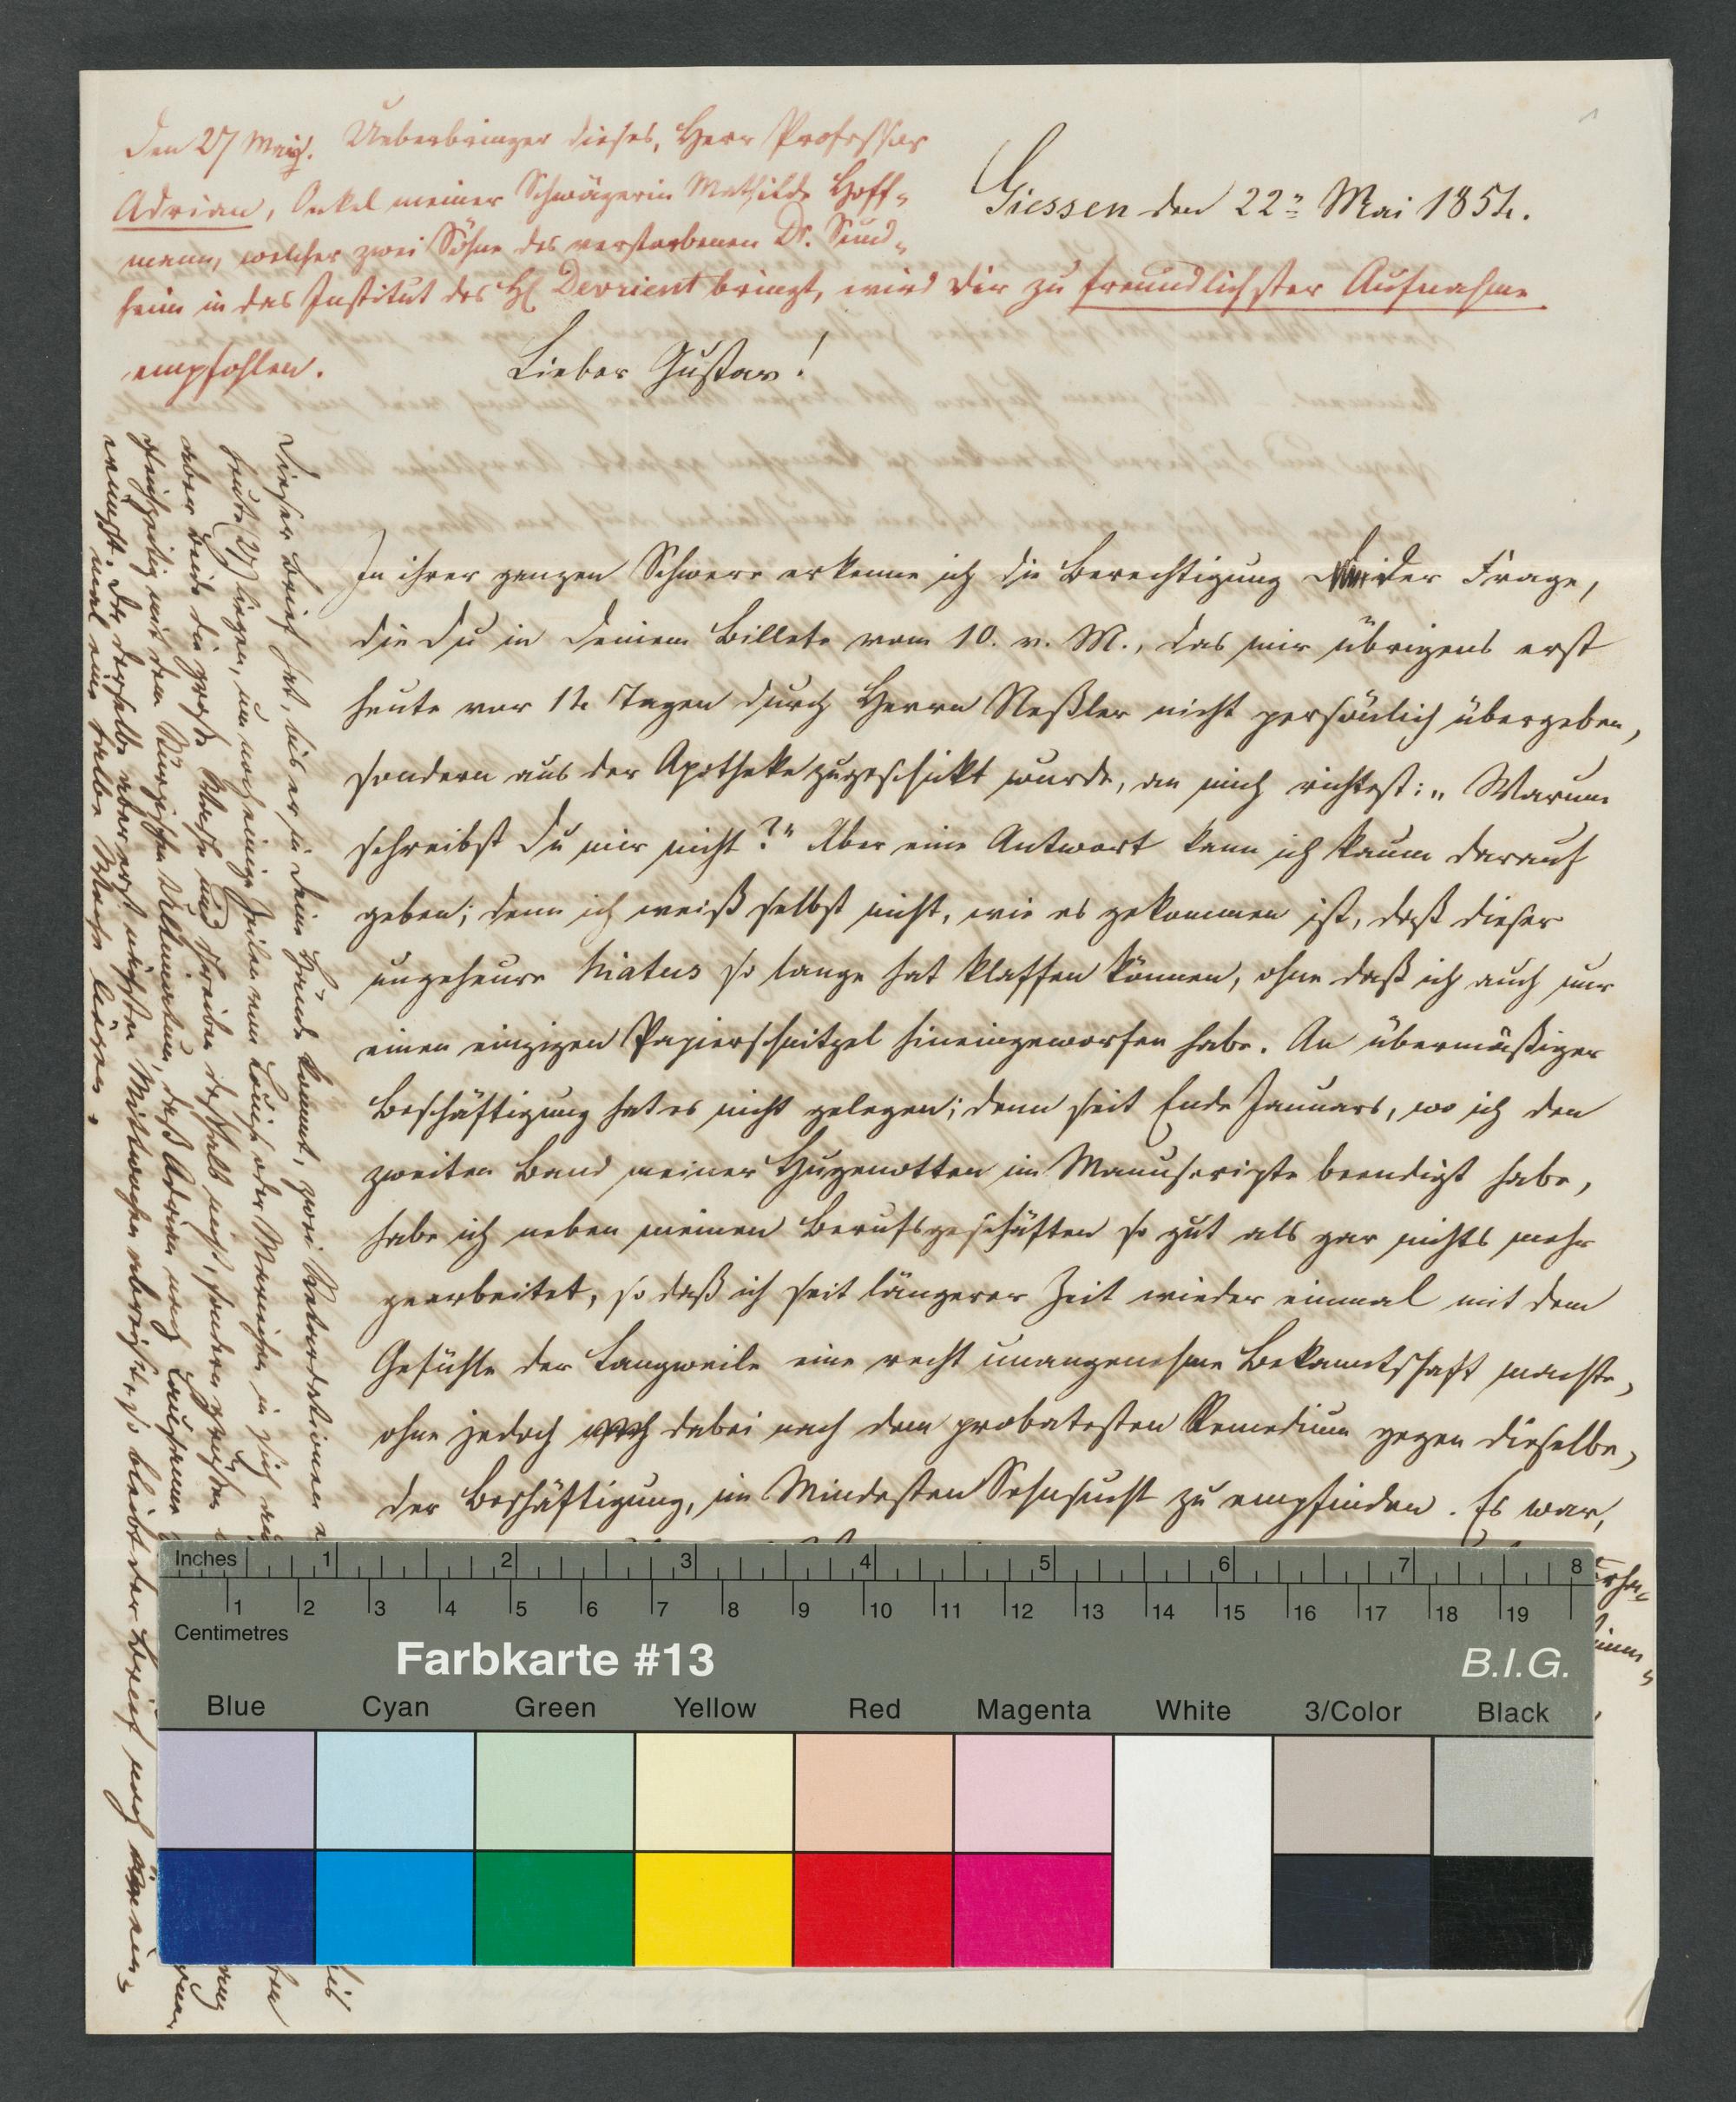 Den 27 Mai. Ueberbringer dieses, Herr Professor
Adrian, Onkel meiner Schwägerin Mathilde Hoff-
mann, welcher zwei Söhne des verstorbenen Dr. Sund-
heim in das Institut des H Devrient bringt, wird Dir zu freundlichster Aufnahme
empfohlen.
Giessen den 22n Mai 1854.
Lieber Gustav!
In ihrer ganzen Schwere erkenne ich die Berechtigung der Frage,
die Du in Deinem Billete vom 10. v. M., das mir übrigens erst
heute vor 14 Tagen durch Herrn Neßler nicht persönlich übergeben,
sondern aus der Apotheke zugeschickt wurde, an mich richtest: „Warum
schreibst Du mir nicht?" Aber eine Antwort kann ich kaum darauf
geben; denn ich weiß selbst nicht, wie es gekommen ist, daß dieser
ungeheure Hiatus so lange hat klaffen können, ohne daß ich auch nur
einen einzigen Papierschnitzel hineingeworfen habe. An übermäßiger
Beschäftigung hat es nicht gelegen; denn seit Ende Januars, wo ich den
zweiten Band meiner Hugenotten im Manuscripte beendigt habe,
habe ich neben meinen Berufsgeschäften so gut als gar nichts mehr
gearbeitet, so daß ich seit längerer Zeit wieder einmal mit dem
Gefühle der Langweile eine recht unangenehme Bekanntschaft machte,
ohne jedoch dabei nach dem probatesten Remedium gegen dieselbe,
der Beschäftigung, im Mindesten Sehnsucht zu empfinden. Es war,
Dieser Brief hat, bis er in Deine Hände kommt, zwei Retardationen
heute 27 liegen, um noch einige Zeilen von Louise oder Mariechen in sich
aber beide die große Wäsche und schreiben deßhalb nicht, sondern grüßen
gleichzeitig mit dem Türkischen Ultimatum, daß Adrian nach Lausanne
reist. Da derselbe aber erst nächsten Mittwochen abreist, so bleibt der Brief noch
mal eine halbe Woche liegen.
Inches 1 2 3 4 5 6 7 8
1 2 3 4 5 6 7 8 9 10 11 12 13 14 15 16 17 18 19
Centimetres
Farbkarte #13
B.I.G.
Blue Cyan Green Yellow Red Magenta White 3/Color Black